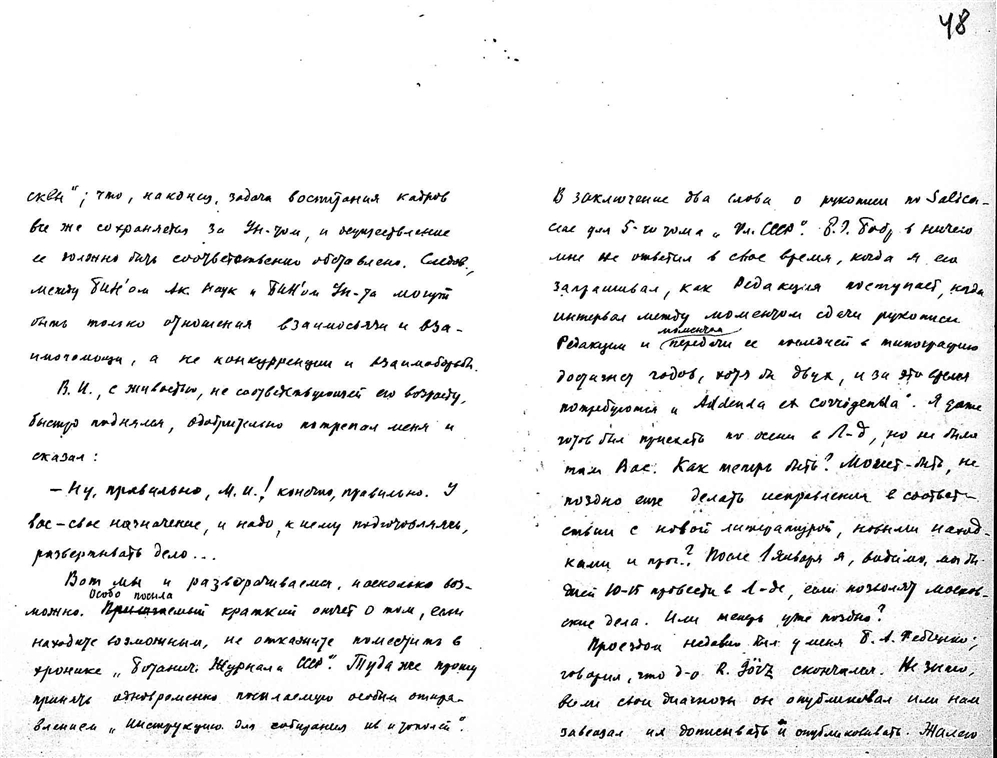 48
сквы"; что, наконец, задача воспитания кадров
все же сохраняется за Ун-том, и осуществление
ее должно быть соответственно обставлено. Следов.,
между БИН'ом Ак. Наук и БИН'ом Ун-та могут
быть только отношения взаимосвязи и вза-
имопомощи, а не конкурренции и взаимоборьбы.
В.И., с живостью, не соответствующей его возрасту,
быстро поднялся, одобрительно потрепал меня и
сказал:
— Ну, правильно, М.И.! конечно, правильно. У
вас – свое назначение, и надо, к нему подготовляясь,
развертывать дело...
Вот мы и разворачиваемся, насколько воз-
Особо посила
можно. краткий отчет о том, если
находите возможным, не откажите поместить в
хронике „Ботанич. Журнала СССР". Туда же прошу
принять одновременно посылаемую особым отпра-
влением „Инструкцию для собирания ив и тополей".
В заключение два слова о рукописи по Salica-
ceae для 5-го тома „Фл. СССР". Е.Г. Бобров ничего
мне не ответил в свое время, когда я его
запрашивал, как Редакция поступает, когда
интервал между моментом сдачи рукописи
моментом
Редакции и передачи ее последней в типографию
достигнет годов, хотя бы двух, и за это время
потребуются и „Addenda et corrigenda". Я даже
готов был приехать по осени в Л-д, но не было
там Вас. Как теперь быть? Может-быть, не
поздно еще делать исправления в соответ-
ствии с новой литературой, новыми наход-
ками и проч.? После 1 января я, видимо, мог бы
дней 10-15 провести в Л-де, если позволят москов-
ские дела. Или теперь уже поздно?
Проездом недавно был у меня Б. А. Федченко;
говорил, что д-р R. Görz скончался. Не знаю,
все ли свои диагнозы он опубликовал или нам
завещал их дописывать и опубликовывать. Жалею